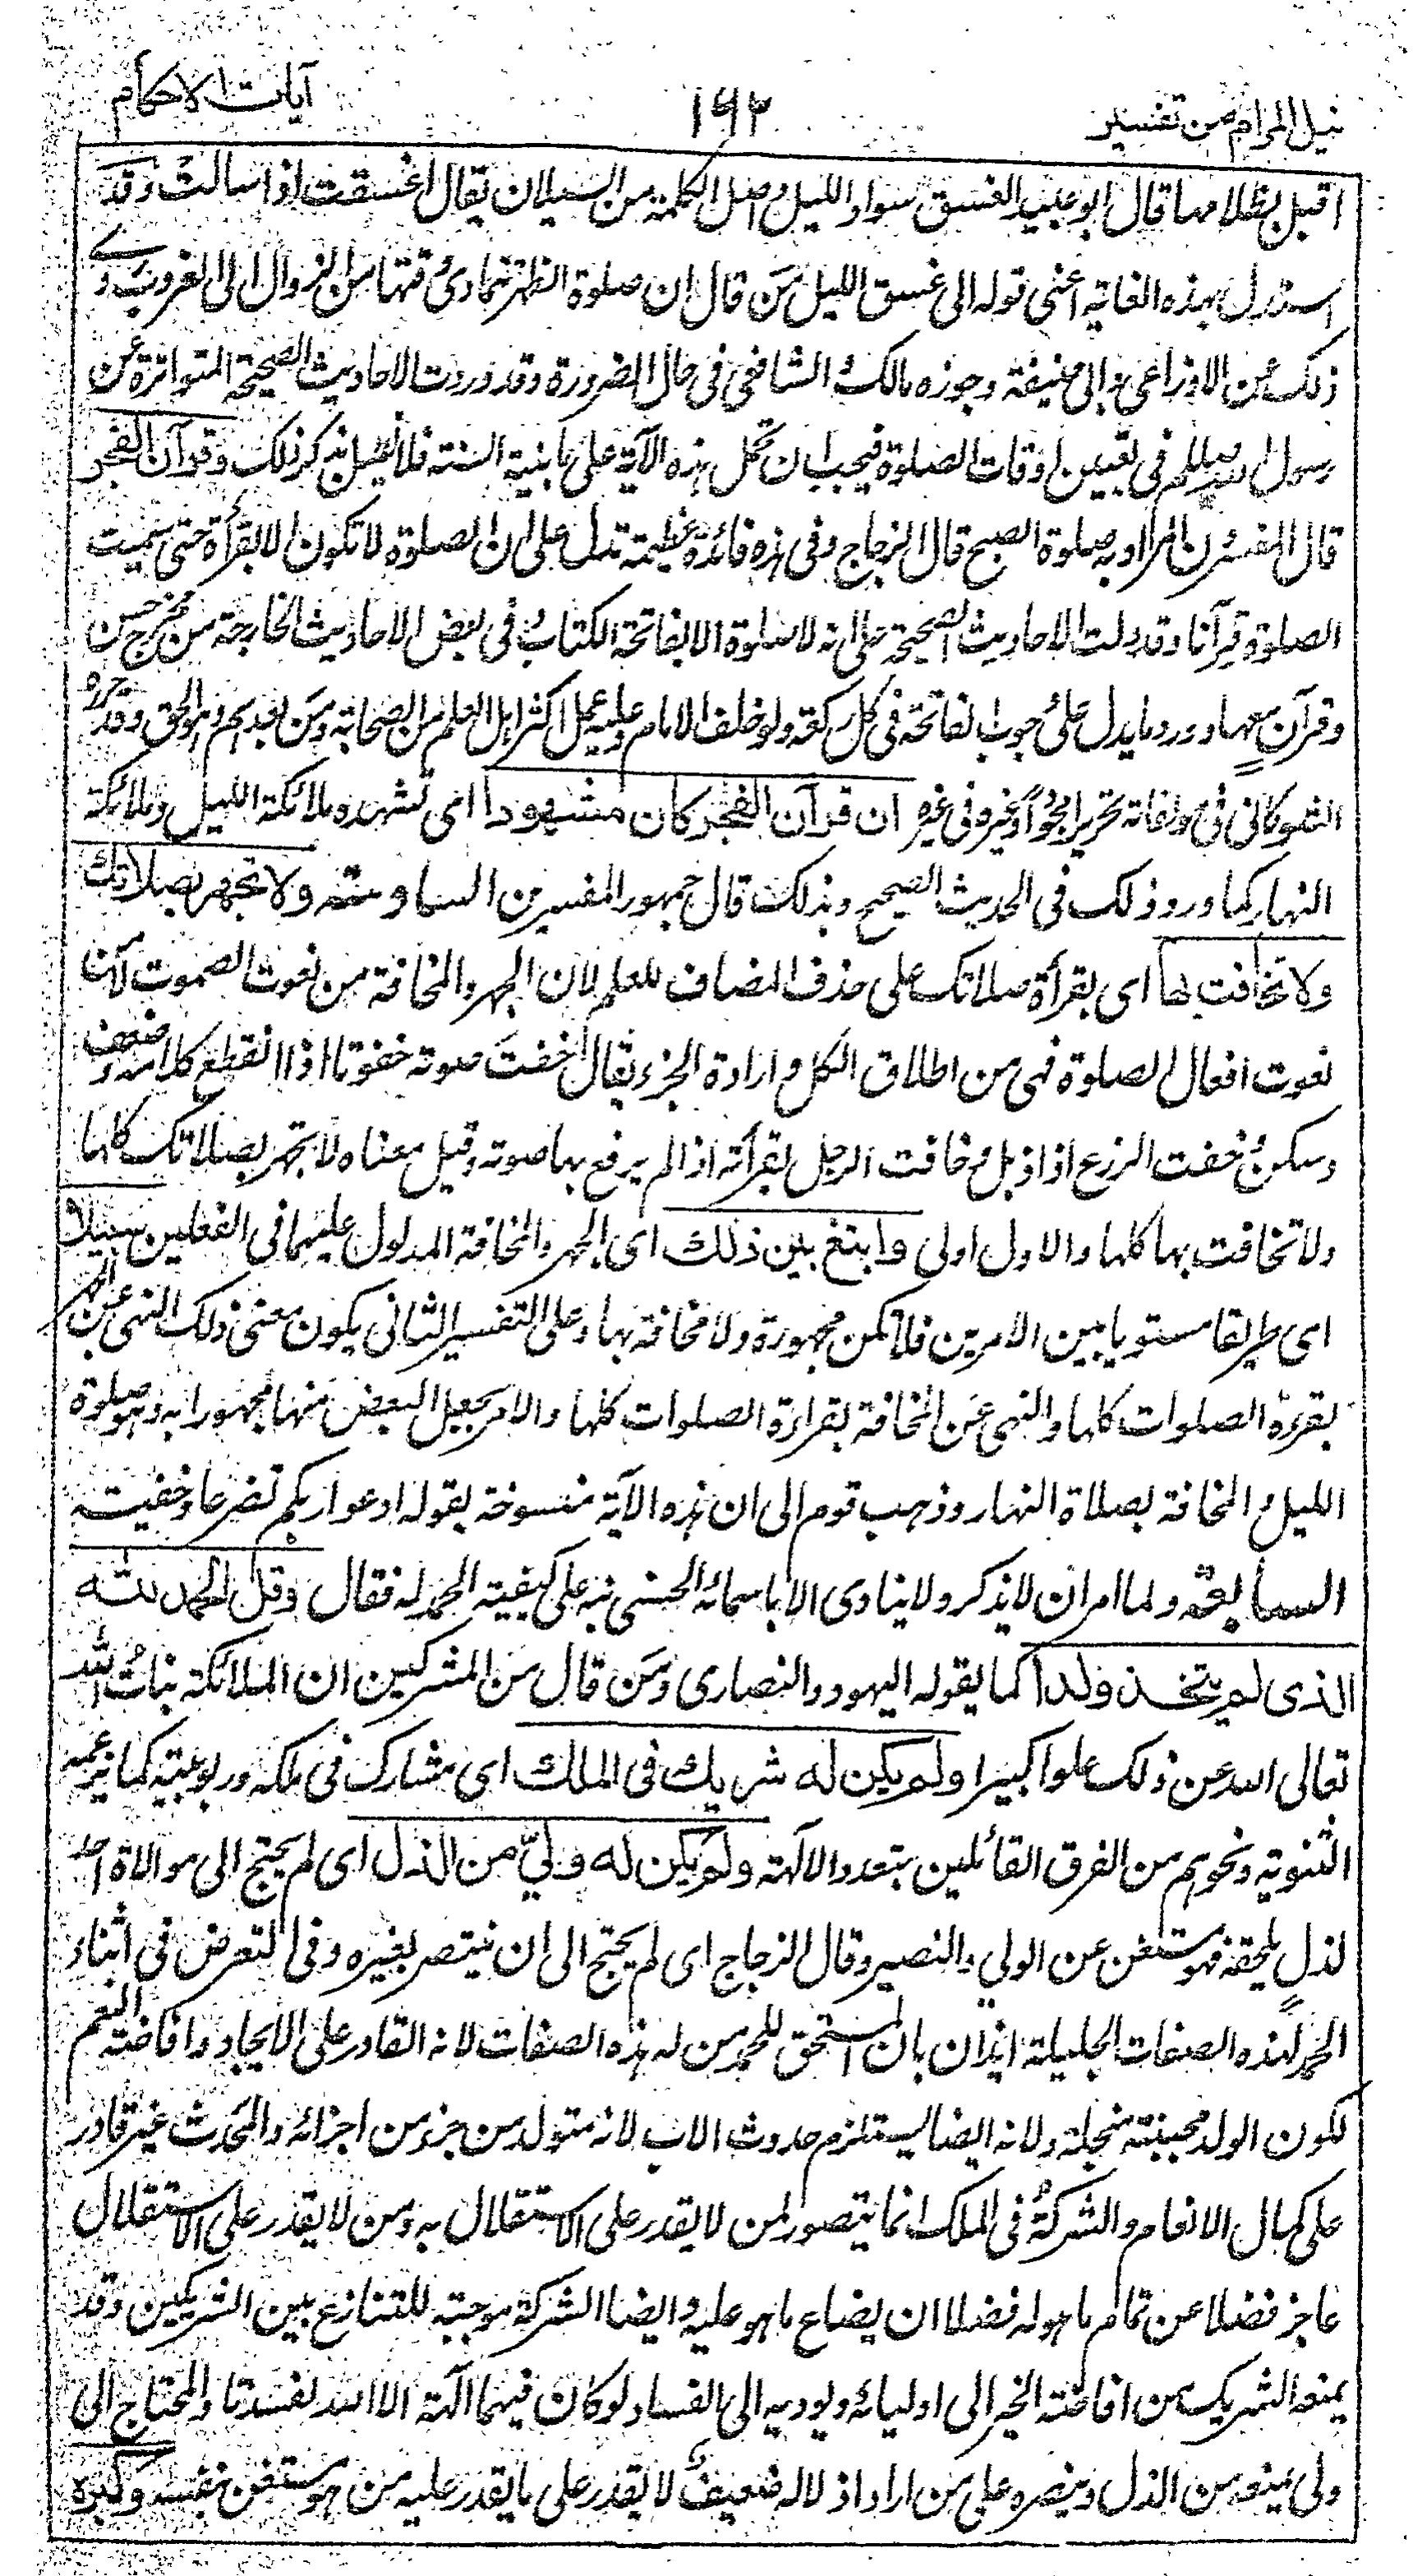 نيل المرام من تفسير
١٦٢
آيات الاحكام
اقبل بظلامها قال ابو عبيد الغسق سواد الليل واصل الكلمة من السيلان يقال اغسقت اذا سالت وقد
استدل بهذه الغاية اعنى قوله الى غسق الليل من قال ان صلوة الظهر يتمادى وقتها من الزوال الى الغروب روى
ذلك عن الاوزاعى وابى حنيفة وجوزه مالك والشافعى فى حال الضرورة وقد وردت الاحاديث الصحيحة المتواترة عن
رسول الله صلعم فى تعيين اوقات الصلوة فيجب ان تحمل هذه الآية على ما بينته السنة فلا نطيل بذكر ذلك وقرآن الفجر
قال المفسرون المراد به صلوة الصبح قال الزجاج وفى هذه فائدة عظيمة تدل على ان الصلوة لا تكون الا بقرأة حتى سميت
الصلوة قرآنا وقد دلت الاحاديث الصحيحة على انه لا صلوة الا بفاتحة الكتاب وفى بعض الاحاديث الخارجة من مخرج حسن
وقرآن معها وورد ما يدل على وجوب الفاتحة فى كل ركعة ولو خلف الامام وعليه عمل اكثر اهل العلم من الصحابة ومن بعدهم وهو الحق وقد حرره
الشوكانى فى مولفاته تحريرا مجودا وغيره فى غيره ان قرآن الفجر كان مشهودا اى تشهده ملائكة الليل وملائكة
النهار كما ورد ذلك فى الحديث الصحيح وبذلك قال جمهور المفسرين السادسة ولا تجهر بصلاتك
ولا تخافت بها اى بقرأة صلاتك على حذف المضاف للعلم لان الجهر والمخافة من نعوت الصوت لا من
نعوت افعال الصلوة فهى من اطلاق الكل وارادة الجزء يقال خفت صوته خفوتا اذا انقطع كلامه وضعف
وسكن وخفت الزرع اذا ذبل وخافت الرجل بقرأته اذا لم يرفع بها صوته وقيل معناه لا تجهر بصلاتك كلها
ولا تخافت بها كلها والاول اولى وابتغ بين ذلك اى الجهر والمخافة المدلول عليهما فى الفعلين سبيلا
اى طريقا مستويا بين الامرين فلا تكن مجهورة ولا مخافة بها وعلى التفسير الثانى يكون معنى ذلك النهى عن الجهر
بقرءة الصلوات كلها والنهى عن المخافة بقراءة الصلوات كلها والامر بجعل البعض منها مجهورا به وهو صلوة
الليل والمخافة بصلاة النهار وذهب قوم الى ان هذه الآية منسوخة بقوله ادعوا ربكم تضرعا وخفية
السابعة ولما امر ان لا يذكر ولا ينادى الا باسمائه الحسنى نبه على كيفية الحمد له فقال وقل الحمد لله
الذى لم يتخذ ولدا كما يقوله اليهود والنصارى ومن قال من المشركين ان الملائكة بنات الله
تعالى الله عن ذلك علوا كبيرا ولم يكن له شريك فى الملك اى مشارك فى ملكه وربوبيته كما يزعمه
الثنوية ونحوهم من الفرق القائلين بتعدد الالهة ولم يكن له ولىّ من الذل اى لم يحتج الى موالاة احد
لذل يلحقه فهو مستغن عن الولى والنصير وقال الزجاج اى لم يحتج الى ان ينتصر بغيره وفى التعرض فى اثناء
الحمد لهذه الصفات الجليلة ايذان بان المستحق للحمد من له هذه الصفات لانه القادر على الايجاد وافاضة النعم
لكون الولد مجبنة مبخلة ولانه ايضا يستلزم حدوث الاب لانه متولد من جزء من اجزائه والمحدث غير قادر
على كمال الانعام والشركة فى الملك انما يتصور لمن لا يقدر على الاستقلال به ومن لا يقدر على الاستقلال
عاجز فضلا عن تمام ما هو له فضلا ان يضاع ما هو عليه وايضا الشركة موجبة للتنازع بين الشريكين وقد
يمنعه الشريك من افاضة الخير الى اوليائه ويوديه الى الفساد لو كان فيهما آلهة الا الله لفسدتا والمحتاج الى
ولى يمنعه من الذل وينصره على من اراد اذلاله ضعيف لا يقدر على ما يقدر عليه من هو مستغن بنفسه وكبره